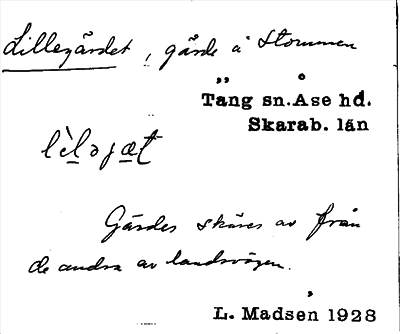 Lillegärdet, gärde å Stommen
Täng sn. Åse hd.
Skarab. län
lèləjæt
Gärdes skäres av från
de andra av landsvägen.
L. Madsén 1928